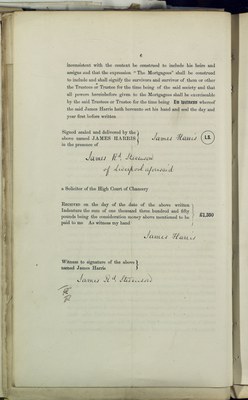 8
inconsistent with the context be construed to include his heirs and
assigns and that the expression "The Mortgagees" shall be construed
to include and shall signify the survivors and survivor of them or other
the Trustees or Trustee for the time being of the said society and that
all powers hereinbefore given to the Mortgagees shall be exerciseable
by the said Trustees or Trustee for the time being In witness whereof
the said James Harris hath hereunto set his hand and seal the day and
year first before written
Signed sealed and delivered by the
above named JAMES HARRIS
in the presence of
James Harris L.S.
James Hd.
of Liverpool aforesaid
a Solicitor of the High Court of Chancery
Received on the day of the date of the above written
Indenture the sum of one thousand three hundred and fifty
pounds being the consideration money above mentioned to be
paid to me As witness my hand
£1,350
James Harris
Witness to signature of the above
named James Harris
James Hd.